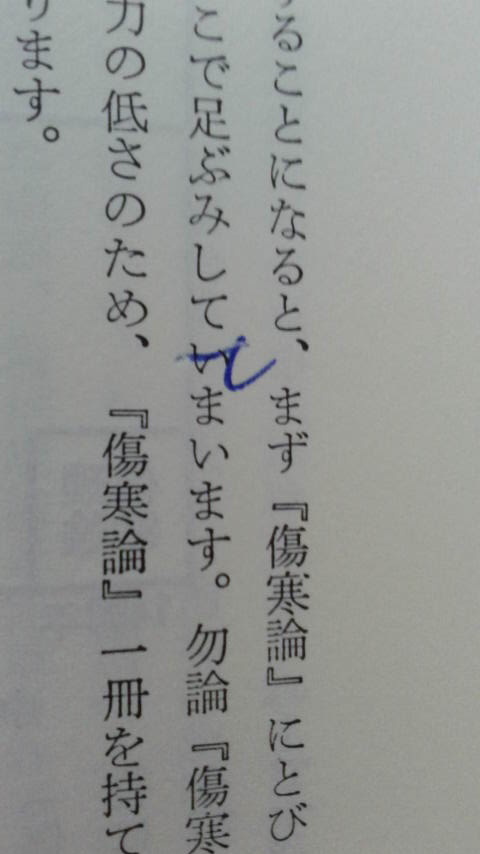 ることになると、まず『傷寒論』にとび
し
こで足ぶみしていまいます。勿論『傷寒
力の低さのため、『傷寒論』一冊を持て
ります。